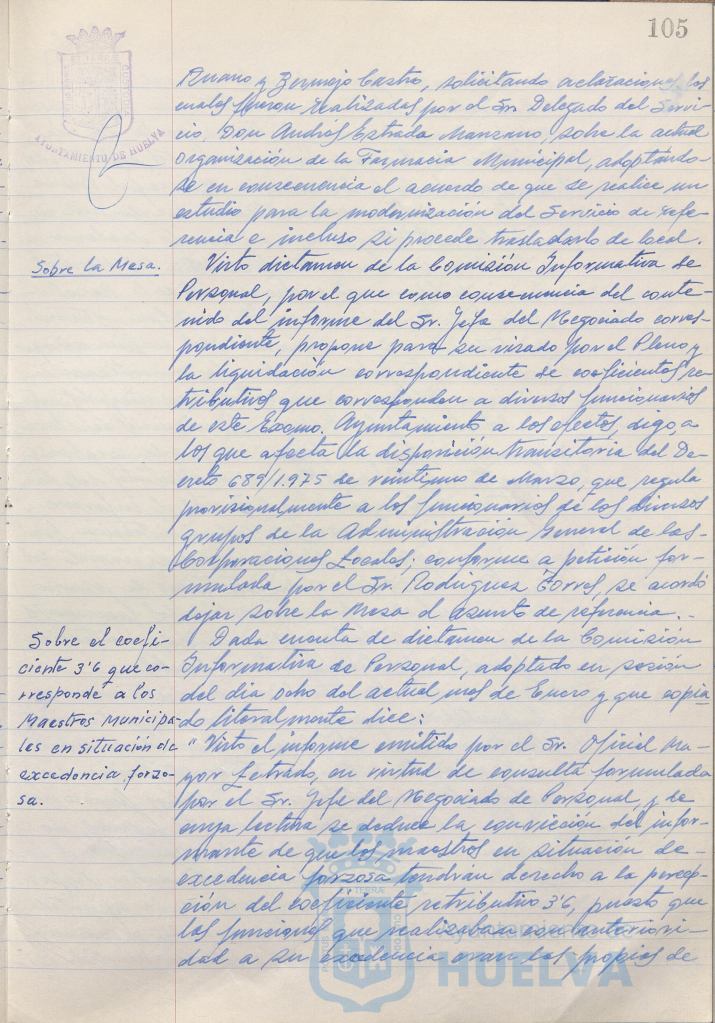 105
AYUNTAMIENTO DE HUELVA
Ruano y Bermejo Castro, solicitando aclaraciones, los
cuales fueron realizadas por el Sr. Delegado del Servi-
cio, Don Andrés Estrada Manzano, sobre la actual
organización de la Farmacia Municipal, adoptándo-
se en consecuencia el acuerdo de que se realice un
estudio para la modernización del Servicio de refe-
rencia e incluso si procede trasladarlo de local.
Sobre la Mesa.
Visto dictamen de la Comisión Informativa de
Personal, por el que como consecuencia del conte-
nido del informe del Sr. Jefe del Negociado corres-
pondiente, propone para su visado por el Pleno y
la liquidación correspondiente de coeficientes re-
tributivos que corresponden a diversos funcionarios
de este Excmo. Ayuntamiento a los efectos, digo, a
los que afecta la disposición transitoria del De-
creto 689/1.975 de veintiuno de Marzo, que regula
provisionalmente a los funcionarios de los diversos
grupos de la Administración General de las
Corporaciones Locales; conforme a petición for-
mulada por el Sr. Rodriguez Torres, se acordó
dejar sobre la Mesa el asunto de referencia.
Sobre el coefi-
ciente 3'6 que co-
rresponde a los
Maestros Municipa-
les en situación de
excedencia forzo-
sa.
Dada cuenta de dictamen de la Comisión
Informativa de Personal, adoptado en sesión
del dia ocho del actual mes de Enero y que copia-
do literalmente dice:
"Visto el informe emitido por el Sr. Oficial Ma-
yor Letrado, en virtud de consulta formulada
por el Sr. Jefe del Negociado de Personal, y de
cuya lectura se deduce la convicción del infor-
mante de que los maestros en situación de
excedencia forzosa tendrán derecho a la percep-
ción del coeficiente retributivo 3'6, puesto que
las funciones que realizaban con anteriori-
dad a su excedencia eran los propios de
Ayuntamiento
HUELVA